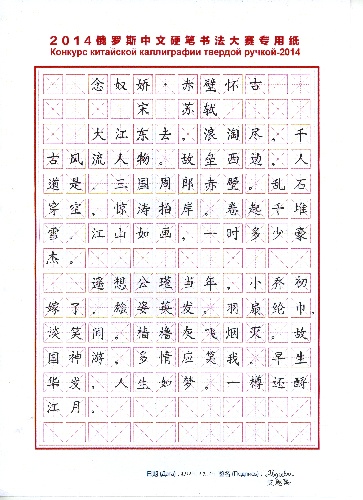 2014俄罗斯中文硬笔书法大赛专用纸
Конкурс китайской каллиграфии твердой ручкой-2014
念奴娇·赤壁怀古
宋 苏轼
大江东去。浪淘尽、千
古风流人物。故垒西边、人
道是、三国周郎赤壁。乱石
穿空、惊涛拍岸。卷起千堆
雪。江山如画、一时多少豪
杰。
遥想公瑾当年、小乔初
嫁了、雄姿英发。羽扇纶巾、
谈笑间。樯橹灰飞烟灭。故
国神游。多情应笑我。早生
华发、人生如梦。一樽还酹
江月.
日期(Дата): 签名(Подпись):